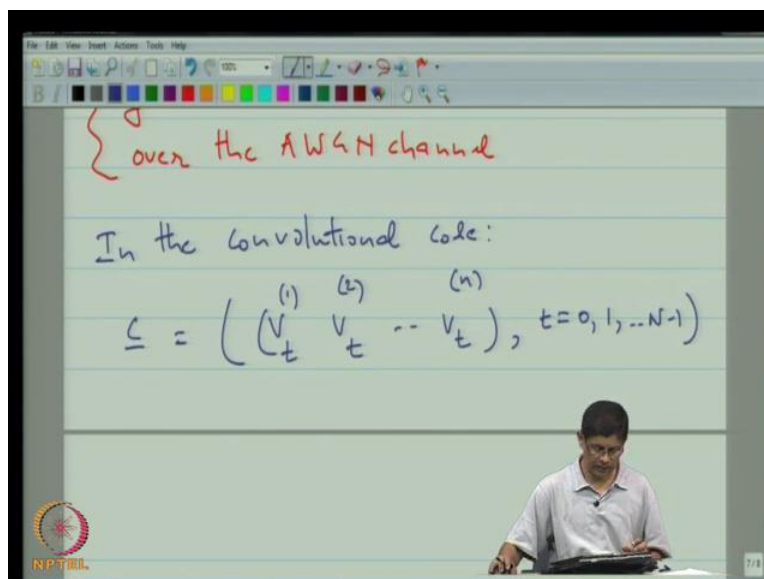 File Edit View Insert Actions Tools Help
100%
B I
over the AWGN channel
In the convolutional code:
(1) (2) (n)
c = ( ( V_t V_t -- V_t ), t = 0, 1, ... N-1 )
NPTEL
7/8